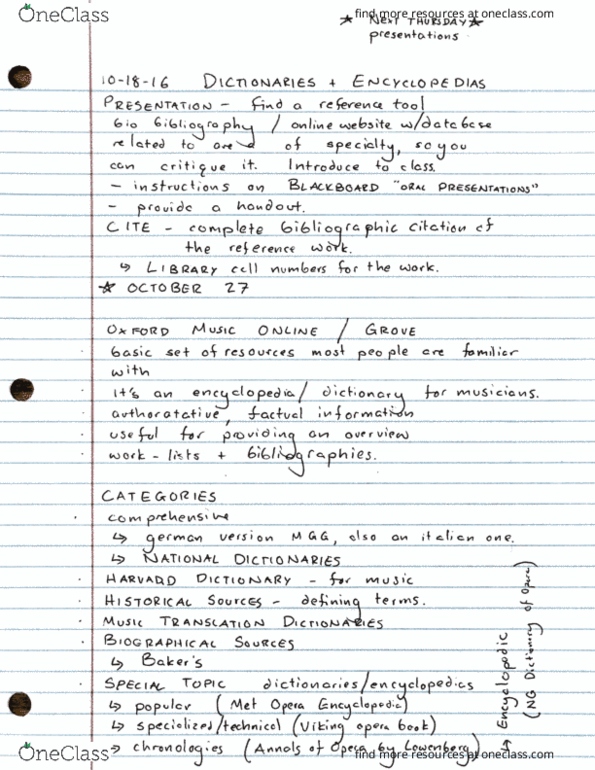 OneClass
find more resources at oneclass.com
★ NEXT THURSDAY ★
presentations
10-18-16 DICTIONARIES + ENCYCLOPEDIAS
PRESENTATION - find a reference tool
bio bibliography / online website w/database
related to area of specialty, so you
can critique it. Introduce to class.
- instructions on BLACKBOARD "ORAL PRESENTATIONS"
- provide a handout.
CITE - complete bibliographic citation of
the reference work.
↳ LIBRARY call numbers for the work.
★ OCTOBER 27
OXFORD MUSIC ONLINE / GROVE
· basic set of resources most people are familiar
with
· it's an encyclopedia / dictionary for musicians.
· authoratative, factual information
· useful for providing an overview
· work-lists + bibliographies.
CATEGORIES
· comprehensive
↳ german version MGG, also an italian one.
↳ NATIONAL DICTIONARIES
· HARVARD DICTIONARY - for music
· HISTORICAL SOURCES - defining terms.
· MUSIC TRANSLATION DICTIONARIES
· BIOGRAPHICAL SOURCES
↳ Baker's
· SPECIAL TOPIC dictionaries/encyclopedias
↳ popular (Met Opera Encyclopedia)
↳ specialized/technical (Viking opera book)
↳ chronologies (Annals of Opera by Lowenberg)
↳ Encyclopedic
(NG Dictionary of Opera)
OneClass
find more resources at oneclass.com